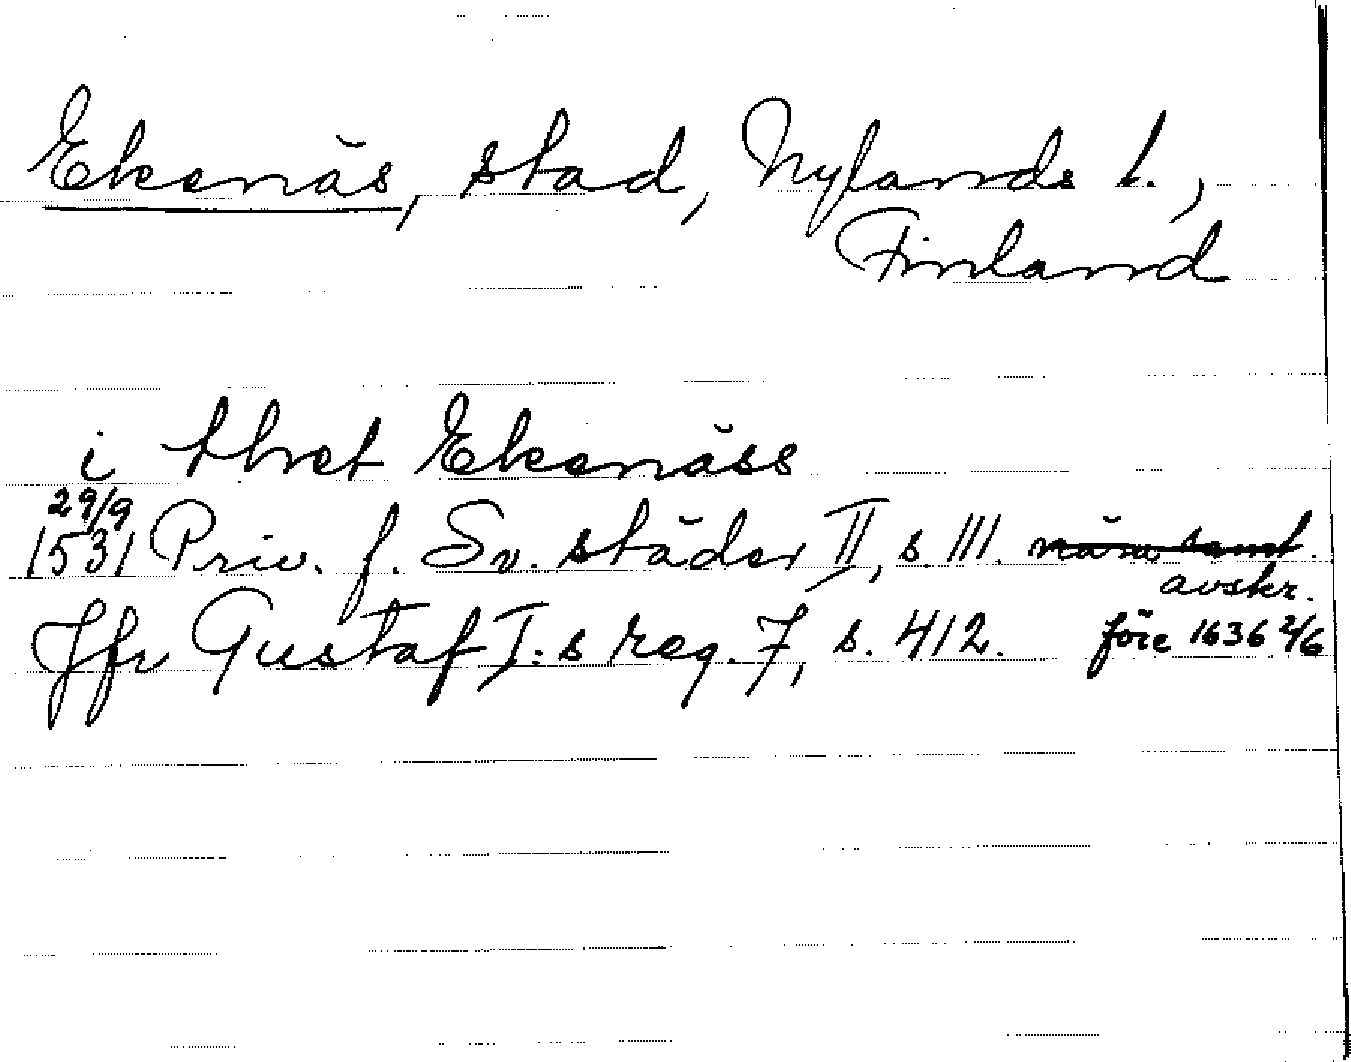 Ekenäs, stad, Nylands l.,
Finland
i thet Ekenäss
29/9
1531 Priv. f. Sv. städer II, s. 111.
avskr.
Jfr Gustaf I:s reg. 7, s. 412. före 1636 2/6